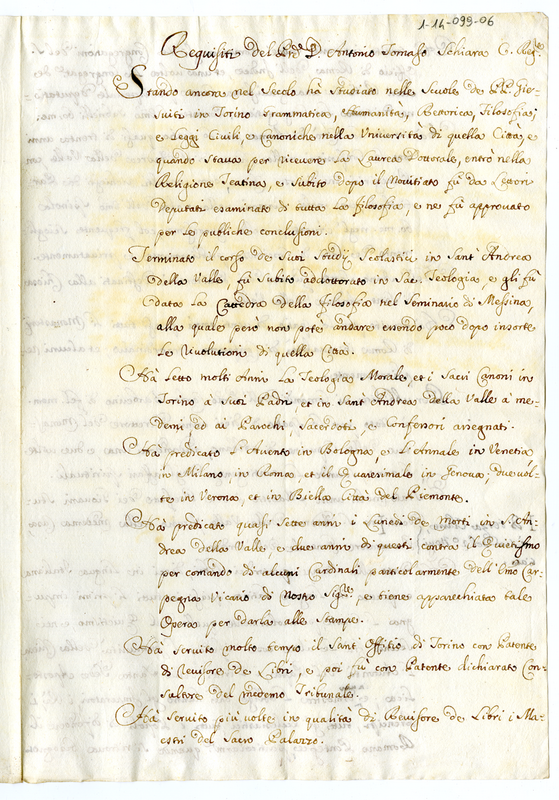 1-14-099-06
Requisiti del Prd.e P. Antonio Tomaso Schiara C. Reg.re
Stando ancora nel Secolo hà studiato nelle Scuole de PP. Gie-
suiti in Torino Grammatica, Humanità, Rettorica, Filosofia;
e Leggi Civili, e Canoniche nella Università di quella Città, e
quando stava per ricevere la Laurea Dottorale, entrò nella
Religione Teatina, e subito dopo il Novitiato fù da Lettori
Deputati esaminato di tutta la filosofia, e ne fù approvato
per le publiche conclusioni.
Terminato il corso de suoi studij Scolastici in Sant'Andrea
della Valle, fù subito addottorato in Sac. Teologia, e gli fù
data la Cattedra della filosofia nel Seminario di Messina,
alla quale però non potè andare essendo poco dopo insorte
le rivolutioni di quella Città.
Hà letto molti Anni la Teologia Morale, et i Sacri Canoni in
Torino à suoi Padri, et in Sant'Andrea della Valle à me-
demi ed ai Parochi Sacerdoti, e Confessori assegnati.
Hà predicato l'Avento in Bologna, e l'Annale in Venetia,
in Milano, in Roma et il Quaresimale in Genova, due vol-
te in Verona, et in Biella Città del Piemonte.
Hà predicato quasi sette anni i Lunedì de Morti in S. An-
drea della Valle e due anni di questi contra il Quietismo
per comando di alcuni Cardinali particolarmente dell'Emo Car-
pegna Vicario di Nostro Sig.re, e tiene apparechiata tale
Opera per darla alle Stampe.
Hà servito molto tempo il Sant'Offitio di Torino con Patente
di Revisore de Libri, e poi fù con Patente dichiarato Con-
sultore del medemo Tribunale.
Hà servito più volte in qualità di Revisore de Libri i Ma-
estri del Sacro Palazzo.